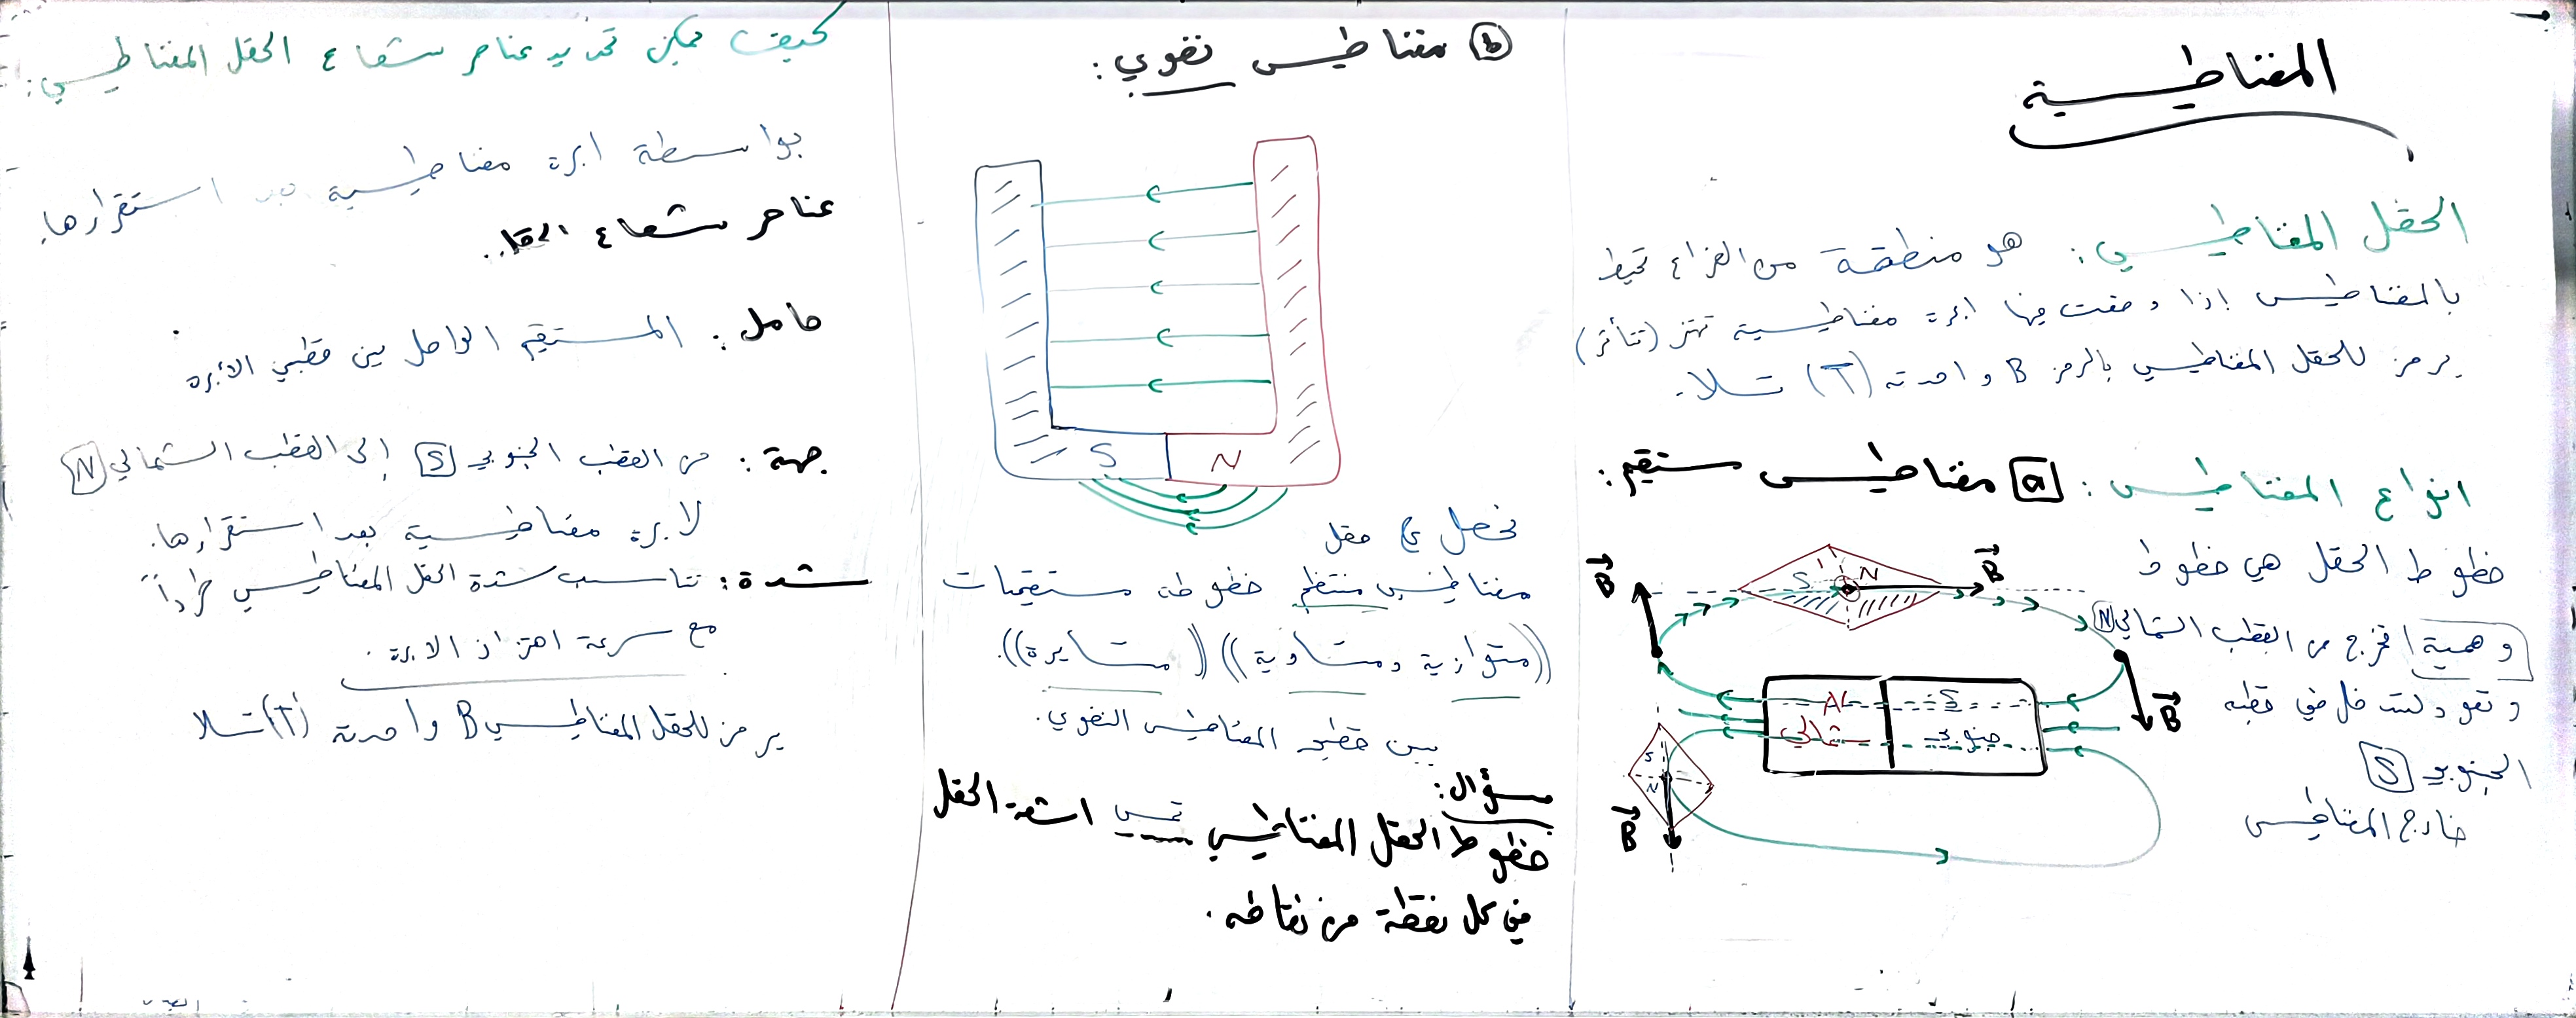 المغناطيسية
الحقل المغناطيسي: هو منطقة من الفراغ تحيط
بالمغناطيس إذا وضعت فيها ابرة مغناطيسية تهتز (تتأثر)
يرمز للحقل المغناطيسي بالرمز B واحدته (T) تسلا.
انواع المغناطيس: a مغناطيس مستقيم:
خطوط الحقل هي خطوط
وهمية تخرج من القطب الشمالي N
وتعود لتدخل في قطبه
الجنوبي S
خارج المغناطيس
B
S N
B
B
S
شمالي جنوبي
S
N
B
b مغناطيس نضوي:
S N
نحصل على حقل
مغناطيسي منتظم خطوطه مستقيمات
((متوازية ومتساوية)) ((متسايرة)).
بين قطبي المغناطيس النضوي.
سؤال:
خطوط الحقل المغناطيسي تمس اشعة الحقل
في كل نقطة من نقاطه.
كيف يمكن تحديد عناصر شعاع الحقل المغناطيسي:
بواسطة ابرة مغناطيسية استقرارها.
عناصر شعاع
حامل: المستقيم الواصل بين قطبي الأبرة
جهة: من القطب الجنوبي S إلى القطب الشمالي N
لابرة مغناطيسية بعد استقرارها.
شدة: تتناسب شدة الحقل المغناطيسي طرداً
مع سرعة اهتزاز الابرة.
يرمز للحقل المغناطيسي B واحدته (T) تسلا